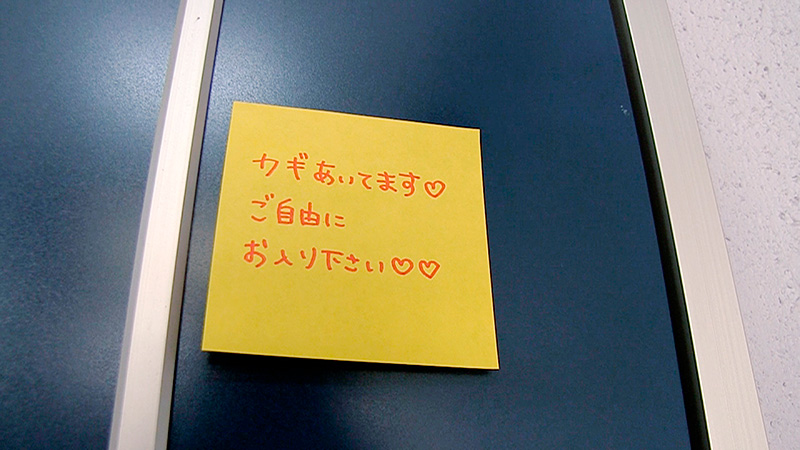 カギあいてます♡
ご自由に
お入り下さい♡♡